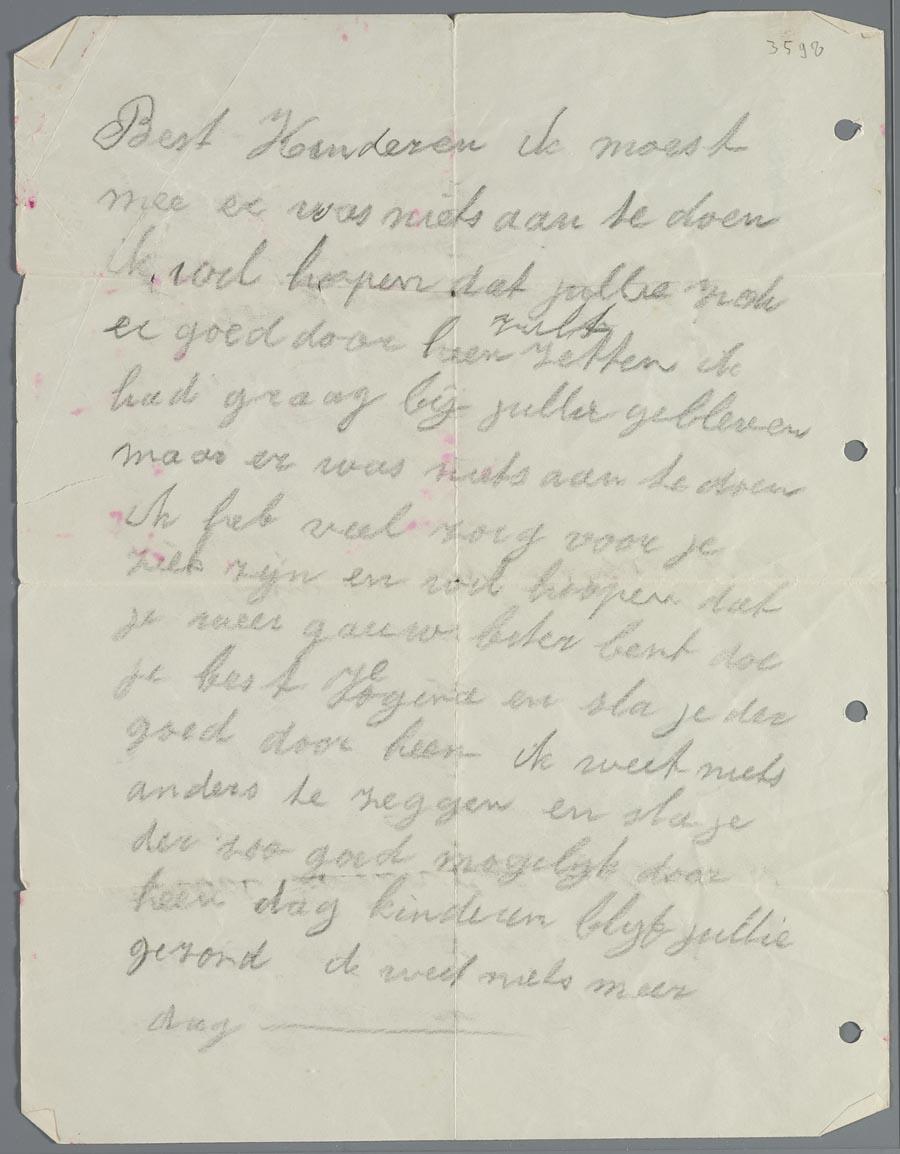 3598
Best Kinderen ik moest
mee er was niets aan te doen
ik wil hoopen dat jullie
er goed door heen zult zetten ik
had graag bij jullie gebleven
maar er was niets aan te doen
ik heb veel zorg voor je
ziek zijn en wil hoopen dat
je weer gauw beter bent doe
je best en sla je der
goed door heen ik weet niets
anders te zeggen en sla je
der zoo goed mogelijk door
heen dag kinderen blijft jullie
gezond ik weet niets meer
dag